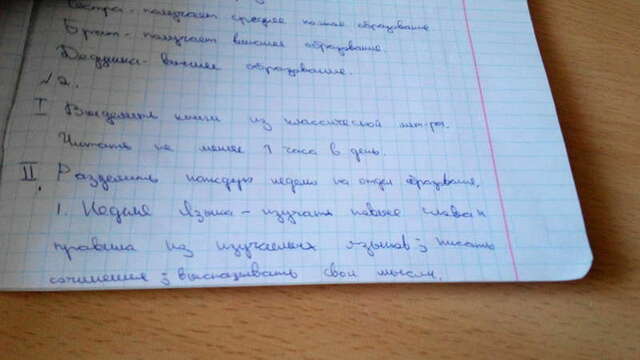 Сестра - получает среднее полное образование
Брат - получает высшее образование.
Дедушка - высшее образование.
№2.
I Выделить книги из классической лит-ры.
Читать не менее 1 часа в день.
II. Разделить каждую неделю на отдел образования.
1. Неделя Языка - изучать новые слова и
правила из изучаемых языков; писать
сочинения; высказывать свои мысли.